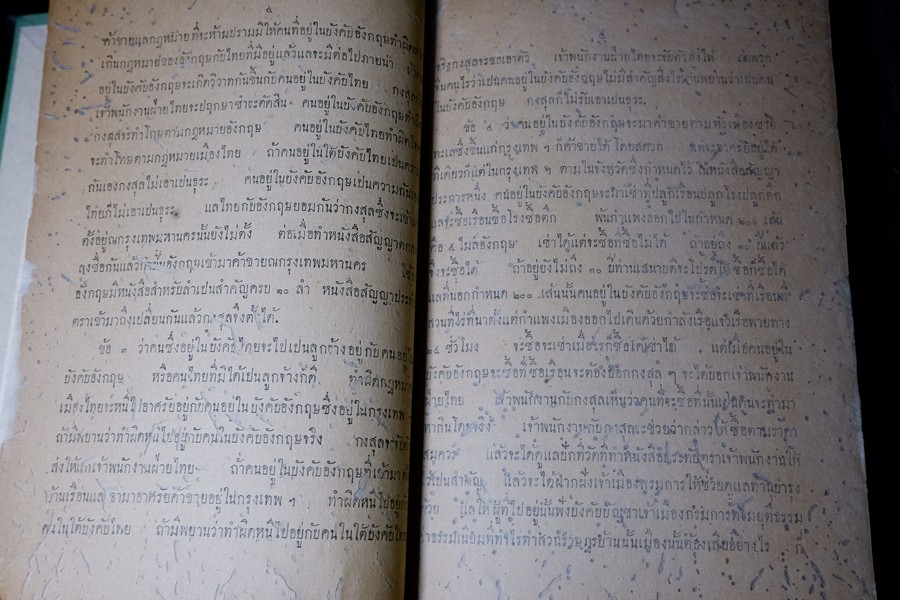 ๕
ค้าขายแลกฎหมายที่จะห้ามปรามมิให้คนที่อยู่ในบังคับอังกฤษทำผิด
เกินกฎหมายของอังกฤษกับไทยที่มีอยู่แล้วแลจะมีต่อไปภายน่า
อยู่ในบังคับอังกฤษจะเกิดวิวาทกันขึ้นกับคนอยู่ในบังคับไทย กงสุล
เจ้าพนักงานฝ่ายไทยจะปฤกษาชำระตัดสิน คนอยู่ในบังคับอังกฤษทำผิด
กงสุลจะทำโทษตามกฎหมายอังกฤษ คนอยู่ในบังคับไทยทำผิดไทย
จะทำโทษตามกฎหมายเมืองไทย ถ้าคนอยู่ในใต้บังคับไทยเป็นความ
กันเองกงสุลไม่เอาเป็นธุระ คนอยู่ในบังคับอังกฤษเป็นความกัน
ไทยก็ไม่เอาเป็นธุระ แลไทยกับอังกฤษยอมกันว่ากงสุลซึ่งจะเข้ามา
ตั้งอยู่ณกรุงเทพมหานครนั้นยังไม่ตั้ง ต่อเมื่อทำหนังสือสัญญาตกลง
ลงชื่อกันแล้ว อังกฤษเข้ามาค้าขายณกรุงเทพมหานคร ใช้
อังกฤษมีหนังสือสำหรับลำเป็นสำคัญครบ ๑๐ ลำ หนังสือสัญญาประทับ
ตราเข้ามาถึงเปลี่ยนกันแล้วกงสุลจึงตั้งได้
ข้อ ๓ ว่าคนซึ่งอยู่ในบังคับไทยจะไปเป็นลูกจ้างอยู่กับคนอยู่
บังคับอังกฤษ หรือคนไทยที่มิได้เป็นลูกจ้างก็ดี ทำผิดกฎหมาย
เมืองไทยจะหนีไปอาศรัยอยู่กับคนอยู่ในบังคับอังกฤษซึ่งอยู่ในกรุงเทพ
ถ้ามีพยานว่าทำผิดหนีไปอยู่กับคนในบังคับอังกฤษจริง กงสุลจะจับ
ส่งให้แก่เจ้าพนักงานฝ่ายไทย ถ้าคนอยู่ในบังคับอังกฤษที่เข้ามา
บ้านเรือนแลเข้ามาอาศรัยค้าขายอยู่ในกรุงเทพ ฯ ทำผิดหนีไปอยู่
คนในใต้บังคับไทย ถ้ามีพยานว่าทำผิดหนีไปอยู่กับคนในใต้บังคับไทย
จริงกงสุลจะขอเอาตัว เจ้าพนักงานฝ่ายไทยจะจับตัวส่งให้
อยู่ในบังคับอังกฤษไม่มีสำคัญสิ่งใดเป็นพยานว่าเป็นคน
ในบังคับอังกฤษ กงสุลก็ไม่รับเอาเป็นธุระ
ข้อ ๔ ว่าคนอยู่ในบังคับอังกฤษจะมาค้าขายตามหัวเมืองชาย
ทะเลซึ่งขึ้นแก่กรุงเทพ ฯ ก็ค้าขายได้โดยสดวก แต่จะอาศรัยอยู่ได้
ที่เดียวก็แต่ในกรุงเทพ ฯ ตามในจังหวัดซึ่งกำหนดไว้ในหนังสือสัญญา
ประการหนึ่ง คนอยู่ในบังคับอังกฤษจะมาเช่าที่ปลูกเรือนปลูกโรงปลูกตึก
แลจะซื้อเรือนซื้อโรงซื้อตึก พ้นกำแพงออกไปในกำหนด ๒๐๐ เส้น
คือ ๔ ไมล์อังกฤษ เช่าได้แต่จะซื้อที่ซื้อไม่ได้ ถ้าอยู่ถึง ๑๐ ปีแล้ว
จึงจะซื้อได้ ถ้าอยู่ยังไม่ถึง ๑๐ ปีท่านเสนาบดีจะโปรดให้ซื้อก็ซื้อได้
แลที่นอกกำหนด ๒๐๐ เส้นนั้นคนอยู่ในบังคับอังกฤษจะซื้อจะเช่าที่เรือนที่
สวนที่ไร่ที่นาตั้งแต่กำแพงเมืองออกไปเดินด้วยกำลังเรือแจวเรือพายทาง
๒๔ ชั่วโมง จะซื้อจะเช่าเมื่อไรก็ซื้อได้เช่าได้ แต่เมื่อคนอยู่ใน
บังคับอังกฤษจะซื้อที่ซื้อเรือนจะต้องบอกกงสุล ๆ จะได้บอกเจ้าพนักงาน
ฝ่ายไทย เจ้าพนักงานกับกงสุลเห็นว่าคนที่จะซื้อที่นั้นเป็นคนจะทำมา
หากินโดยจริง เจ้าพนักงานกับกงสุลจะช่วยว่ากล่าวให้ซื้อตามราคา
สมควร แล้วจะได้ดูแลปักที่วัดที่ทำหนังสือประทับตราเจ้าพนักงานให้
ไว้เป็นสำคัญ แล้วจะได้ฝากฝังเจ้าเมืองกรมการให้ช่วยดูแลทำนุบำรุง
ด้วย แลให้ผู้ที่ไปอยู่นั้นฟังบังคับบัญชาเจ้าเมืองกรมการที่ยุติธรรม